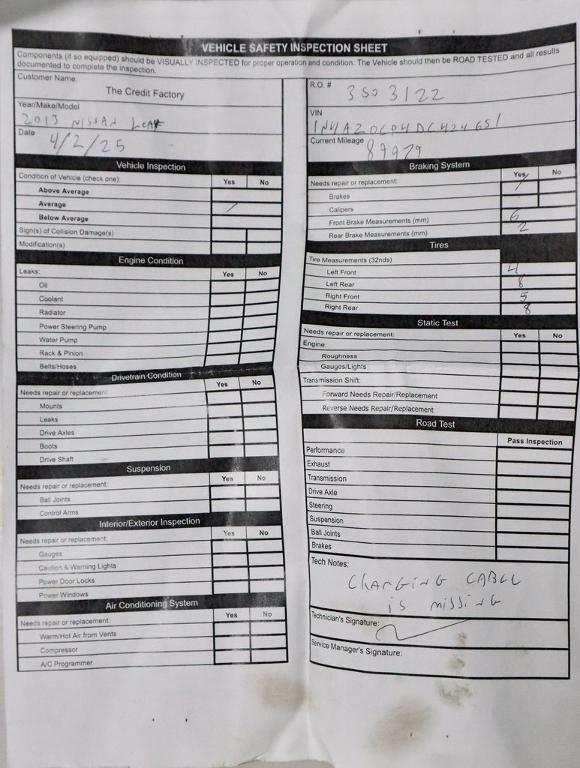 VEHICLE SAFETY INSPECTION SHEET
Components (if so equipped) should be VISUALLY INSPECTED for proper operation and condition. The Vehicle should then be ROAD TESTED and all results
documented to complete the inspection.
Customer Name:
The Credit Factory
Year/Make/Model
2013 NISSAN LEAF
Date
4/2/25
R.O. #
3503122
VIN
Current Mileage
87979
Vehicle Inspection
Condition of Vehicle (check one): Yes No
Above Average
Average /
Below Average
Sign(s) of Collision Damage(s)
Modification(s)
Engine Condition
Leaks: Yes No
Oil
Coolant
Radiator
Power Steering Pump
Water Pump
Rack & Pinion
Belts/Hoses
Drivetrain Condition
Needs repair or replacement: Yes No
Mounts
Leaks
Drive Axles
Boots
Drive Shaft
Suspension
Needs repair or replacement: Yes No
Ball Joints
Control Arms
Interior/Exterior Inspection
Needs repair or replacement: Yes No
Gauges
Caution & Warning Lights
Power Door Locks
Power Windows
Air Conditioning System
Needs repair or replacement: Yes No
Warm/Hot Air from Vents
Compressor
A/C Programmer
Braking System
Needs repair or replacement: Yes No
Brakes
Calipers
Front Brake Measurements (mm) 6
Rear Brake Measurements (mm) 2
Tires
Tire Measurements (32nds)
Left Front 4
Left Rear 8
Right Front 5
Right Rear 8
Static Test
Needs repair or replacement: Yes No
Engine:
Roughness
Gauges/Lights
Transmission Shift:
Forward Needs Repair/Replacement
Reverse Needs Repair/Replacement
Road Test
Pass Inspection
Performance
Exhaust
Transmission
Drive Axle
Steering
Suspension
Ball Joints
Brakes
Tech Notes:
CHARGING CABLE
is missing
Technician's Signature:
Service Manager's Signature: